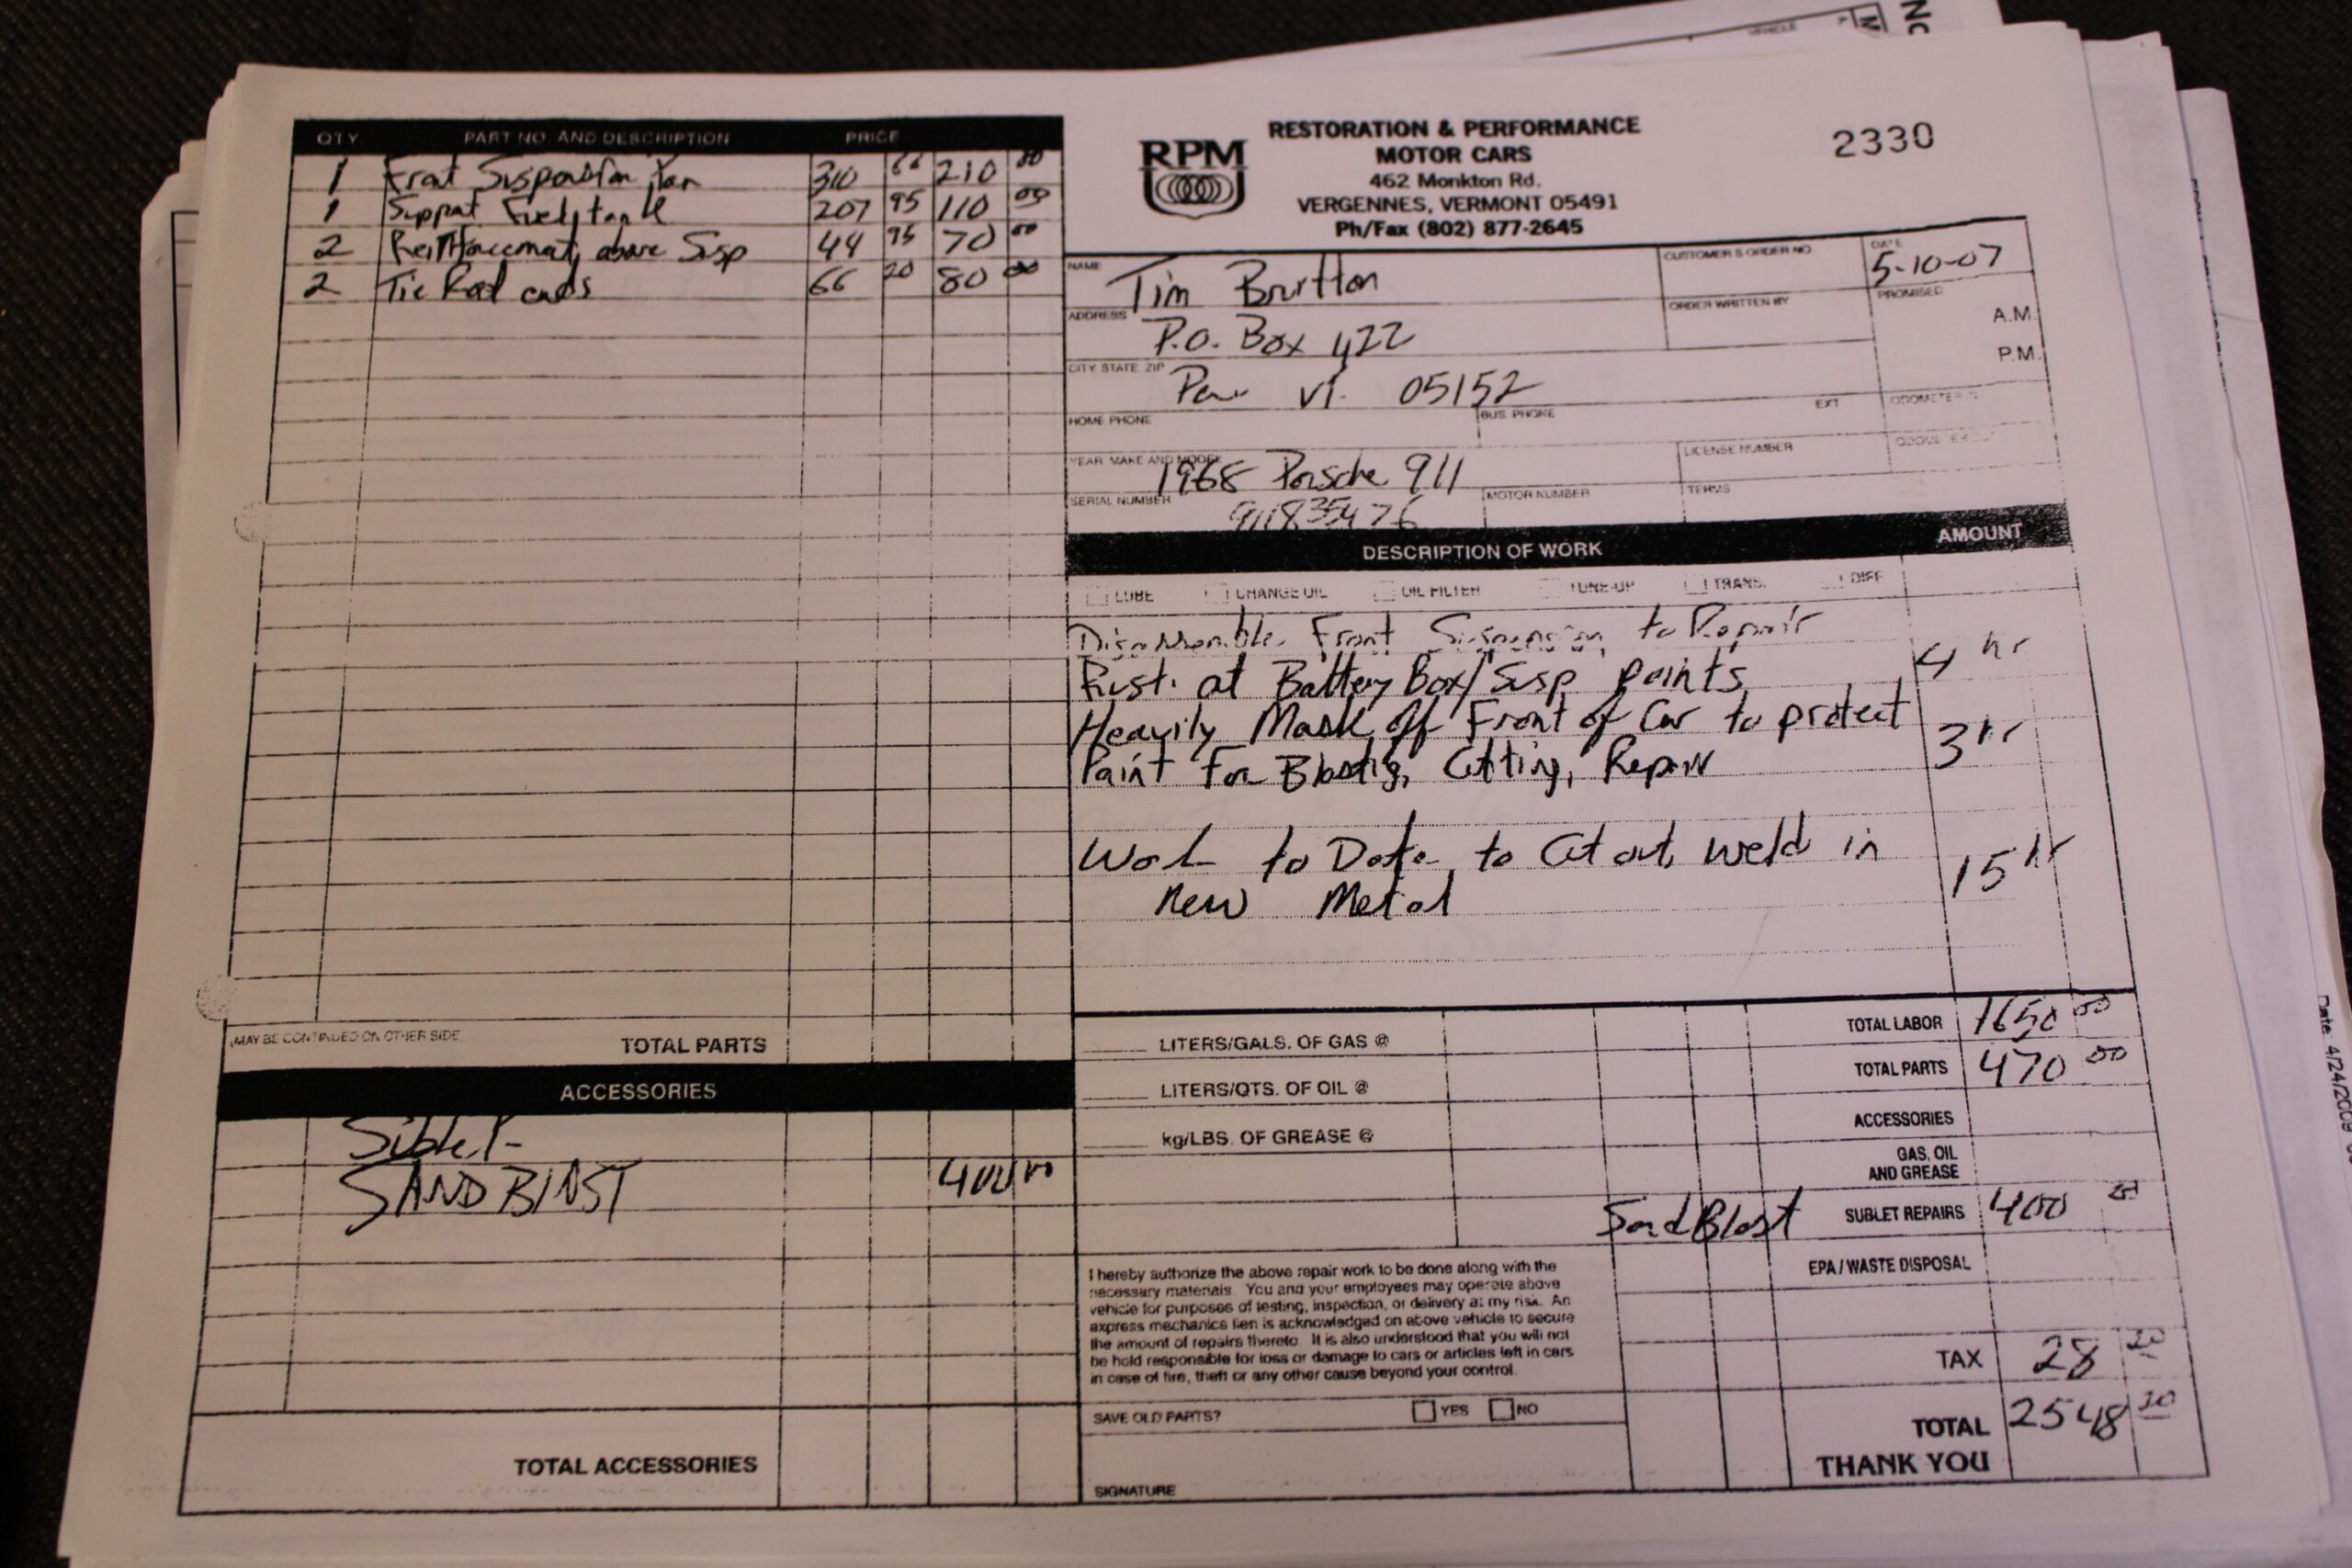 QTY PART NO. AND DESCRIPTION PRICE
1 Front Suspension Pan 310 66 210 00
1 Support Fuel tank 207 95 110 00
2 Reinforcement above Susp 44 95 70 00
2 Tie Rod ends 66 20 80 00
(MAY BE CONTINUED ON OTHER SIDE) TOTAL PARTS
ACCESSORIES
Sublet-
SANDBLAST 400 00
TOTAL ACCESSORIES
RPM
RESTORATION & PERFORMANCE
MOTOR CARS
462 Monkton Rd.
VERGENNES, VERMONT 05491
Ph/Fax (802) 877-2645
2330
NAME Tim Britton
CUSTOMER'S ORDER NO.
DATE 5-10-07
ADDRESS P.O. Box 422
ORDER WRITTEN BY
PROMISED
A.M.
P.M.
CITY, STATE, ZIP Peru Vt. 05152
HOME PHONE BUS. PHONE EXT
ODOMETER IN
YEAR, MAKE AND MODEL 1968 Porsche 911
LICENSE NUMBER
SERIAL NUMBER 911835476
MOTOR NUMBER TERMS
DESCRIPTION OF WORK AMOUNT
LUBE CHANGE OIL OIL FILTER TUNE-UP TRANS. DIFF
Disassemble Front Suspension to Repair
Rust at Battery Box/Susp points 4 hr
Heavily Mask off Front of Car to protect
Paint For Blasting, Cutting, Repair 3 hr
Work to Date to Cut out, weld in
New Metal 15 hr
LITERS/GALS. OF GAS @ TOTAL LABOR 1650 00
LITERS/QTS. OF OIL @ TOTAL PARTS 470 00
kg/LBS. OF GREASE @ ACCESSORIES
GAS, OIL
AND GREASE
Sand Blast SUBLET REPAIRS 400 00
EPA / WASTE DISPOSAL
I hereby authorize the above repair work to be done along with the
necessary materials. You and your employees may operate above
vehicle for purposes of testing, inspection, or delivery at my risk. An
express mechanics lien is acknowledged on above vehicle to secure
the amount of repairs thereto. It is also understood that you will not
be held responsible for loss or damage to cars or articles left in cars
in case of fire, theft or any other cause beyond your control.
TAX 28 20
SAVE OLD PARTS? YES NO
TOTAL 2548 20
THANK YOU
SIGNATURE
VEHICLE
Date: 4/24/2009